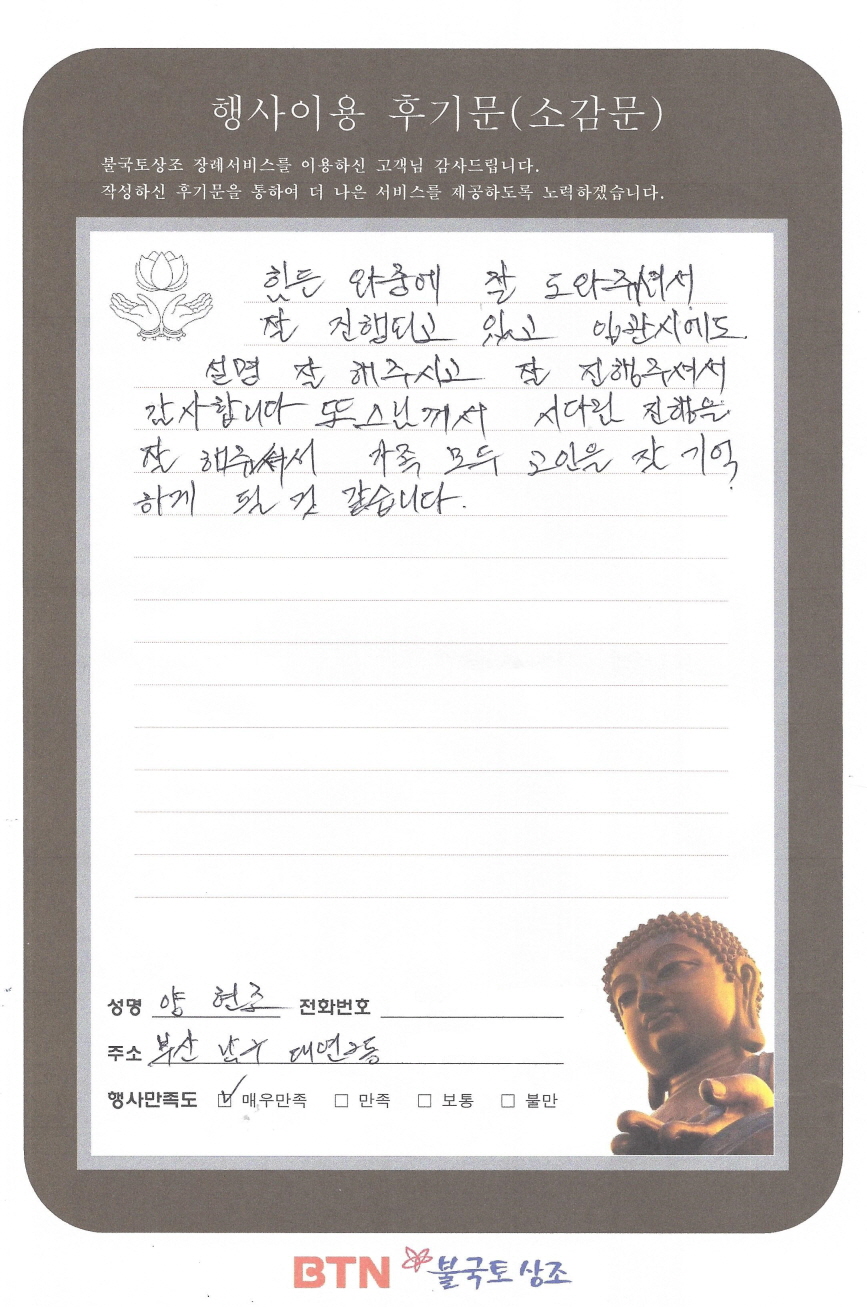 행사이용 후기문(소감문)
불국토상조 장례서비스를 이용하신 고객님 감사드립니다.
작성하신 후기문을 통하여 더 나은 서비스를 제공하도록 노력하겠습니다.
힘든 와중에 잘 도와주셔서
잘 진행되고 있고 입관시에도
설명 잘 해주시고 잘 진행주셔서
감사합니다 또 스님께서 시다림 진행을
잘 해주셔서 가족 모두 고인을 잘 기억
하게 될 것 같습니다.
성명 양 현준 전화번호
주소 부산 남구 대연2동
행사만족도 ☑ 매우만족 □ 만족 □ 보통 □ 불만
BTN 불국토상조